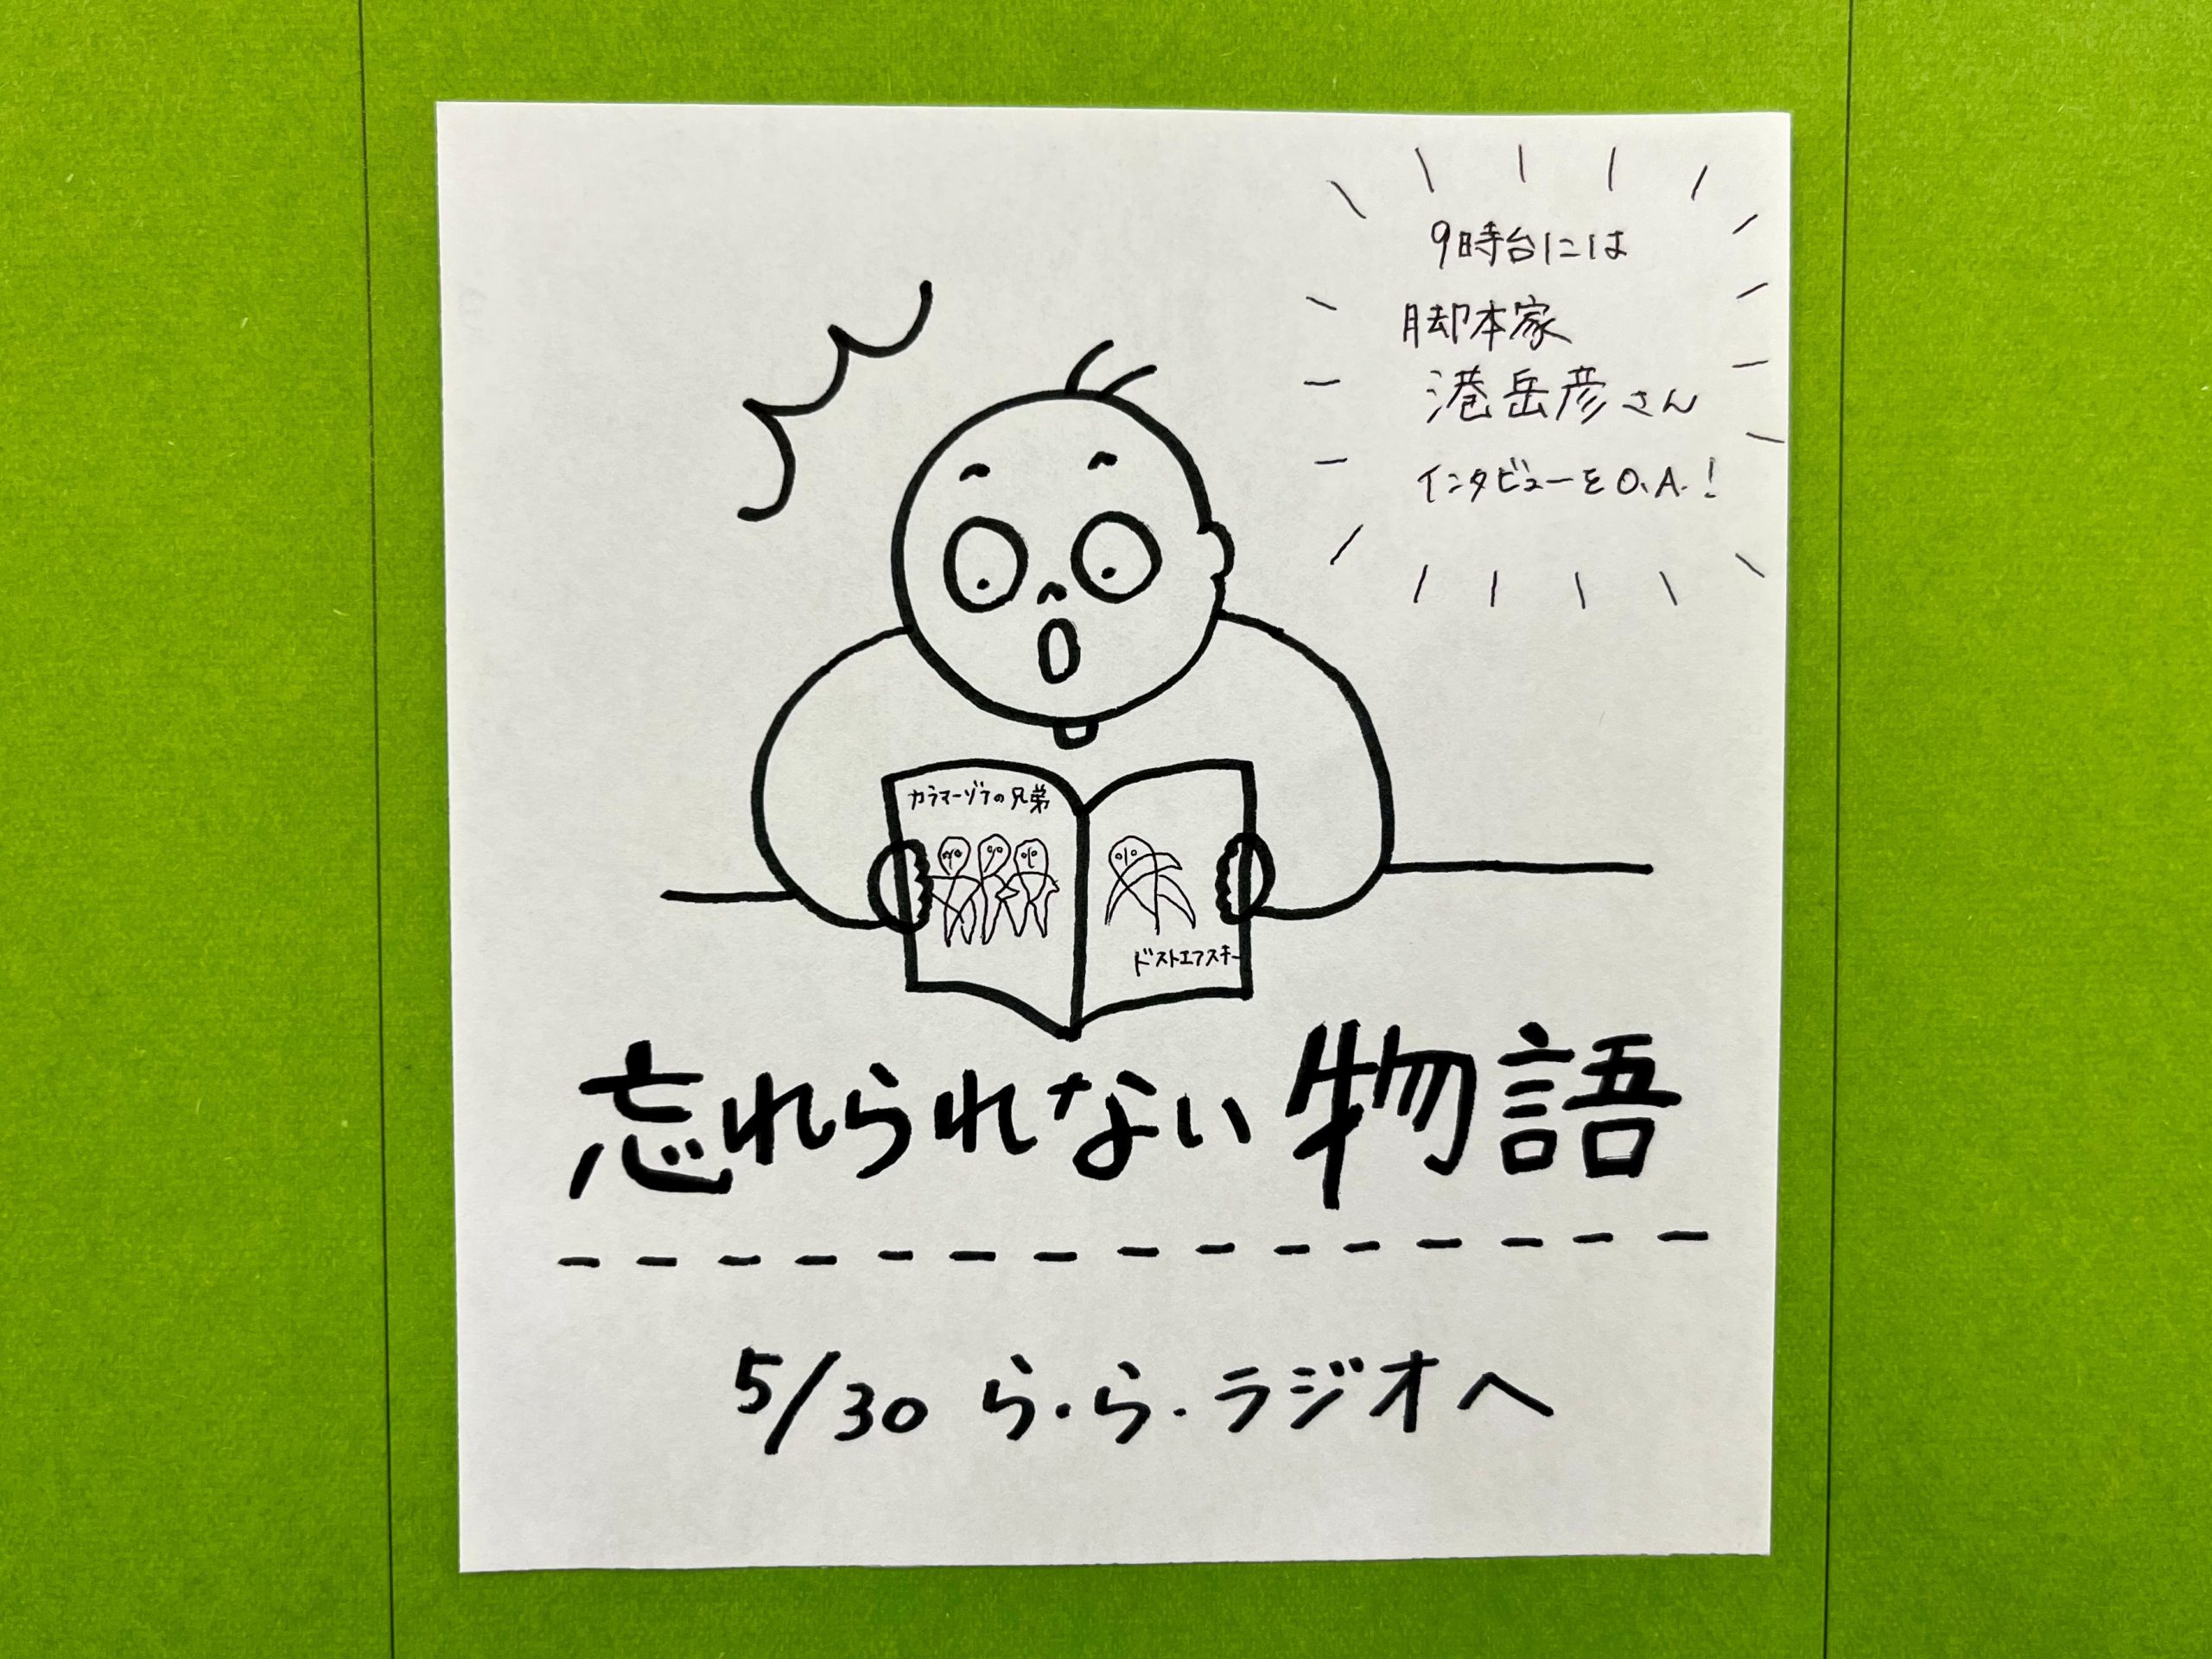 9時台には
脚本家
港岳彦さん
インタビューをO.A.!
カラマーゾフの兄弟
ドストエフスキー
忘れられない物語
5/30 ら・ら・ラジオへ